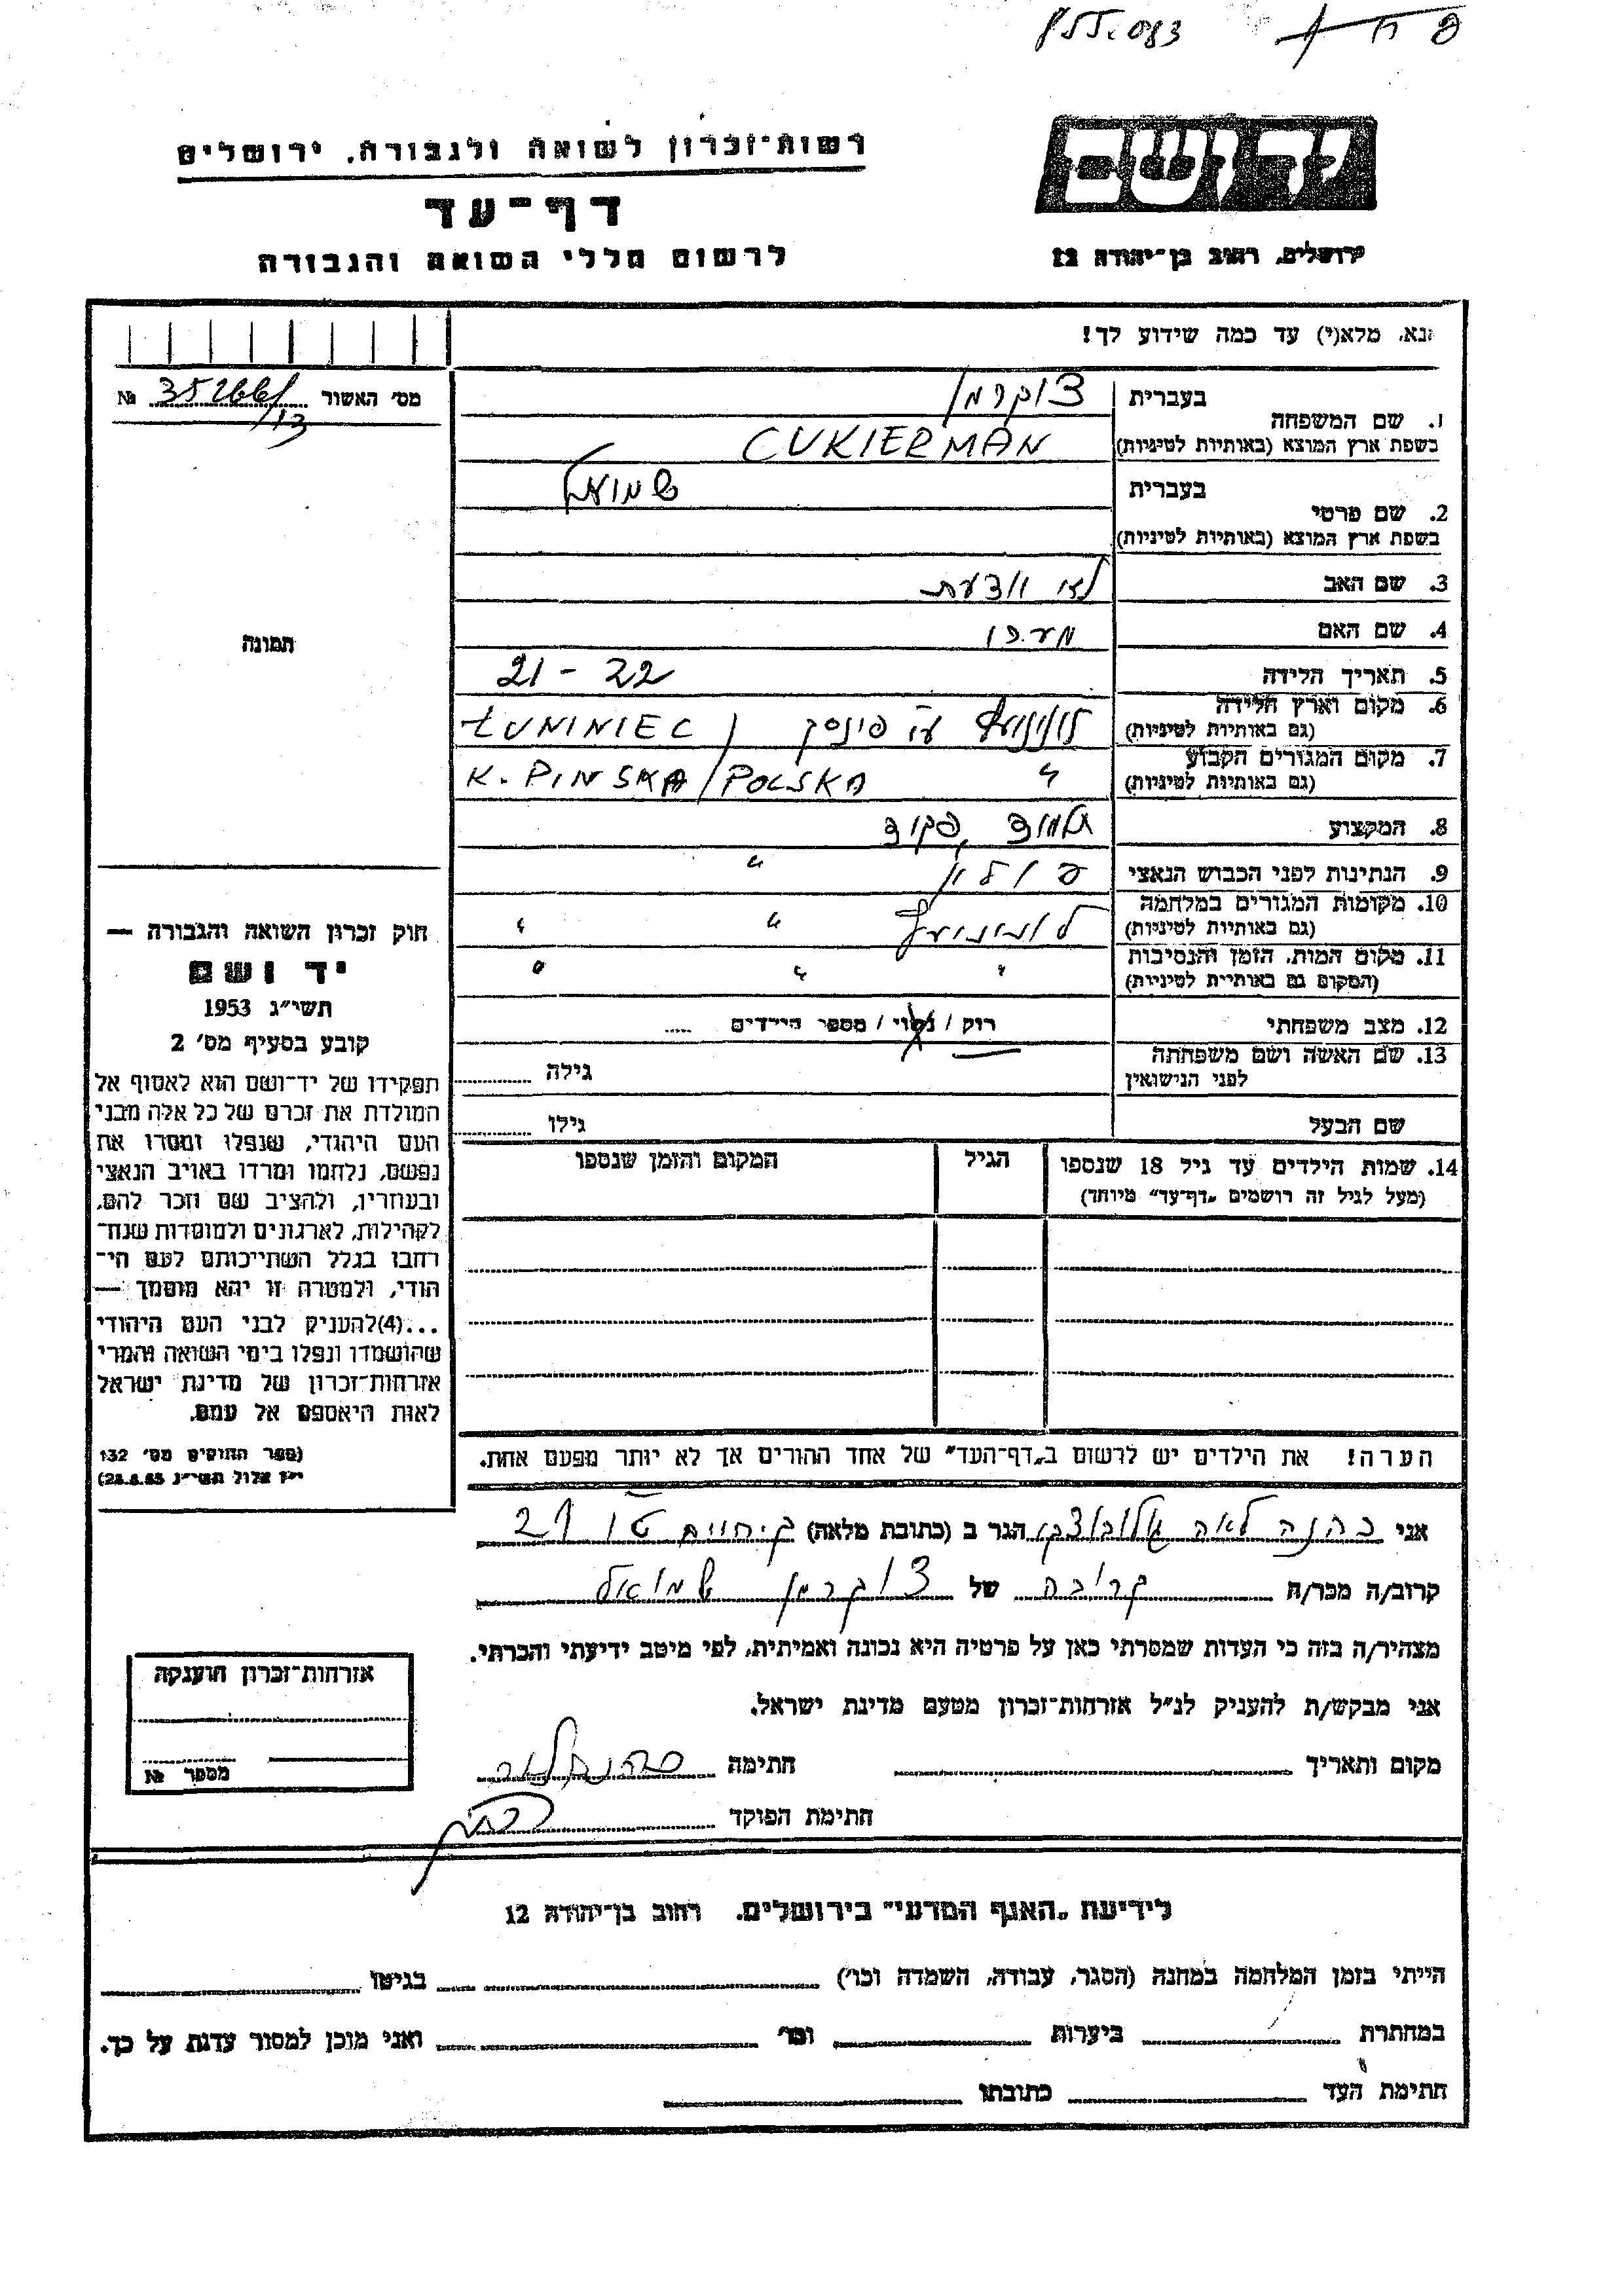 רשות־זכרון לשואה ולגבורה, ירושלים
דף־עד
לרשום חללי השואה והגבורה
יד ושם
ירושלים, רחוב בן־יהודה 12
נא, מלא(י) עד כמה שידוע לך!
מס' האשור № 352661/13
1. שם המשפחה
בעברית צוקרמן
בשפת ארץ המוצא (באותיות לטיניות) CUKIERMAN
2. שם פרטי
בעברית שמואל
בשפת ארץ המוצא (באותיות לטיניות)
3. שם האב לא יודעת
4. שם האם
5. תאריך הלידה 21-22
6. מקום וארץ הלידה
(גם באותיות לטיניות) לונינייץ ע"י פינסק / ŁUNINIEC
7. מקום המגורים הקבוע
(גם באותיות לטיניות) " K. PINSKA/POLSKA
8. המקצוע תלמיד, פקיד
9. הנתינות לפני הכבוש הנאצי פולין "
10. מקומות המגורים במלחמה
(גם באותיות לטיניות) לונינייץ " "
11. מקום המות, הזמן והנסיבות
(המקום גם באותיות לטיניות) " " "
12. מצב משפחתי רוק / נשוי / מספר הילדים
13. שם האשה ושם משפחתה
לפני הנישואין גילה
שם הבעל גילו
14. שמות הילדים עד גיל 18 שנספו
(מעל לגיל זה רושמים "דף־עד" מיוחד)
הגיל
המקום והזמן שנספו
הערה! את הילדים יש לרשום ב"דף־העד" של אחד ההורים אך לא יותר מפעם אחת.
תמונה
חוק זכרון השואה והגבורה —
יד ושם
תשי״ג 1953
קובע בסעיף מס' 2
תפקידו של יד־ושם הוא לאסוף אל
המולדת את זכרם של כל אלה מבני
העם היהודי, שנפלו ומסרו את
נפשם, נלחמו ומרדו באויב הנאצי
ובעוזריו, ולהציב שם וזכר להם,
לקהילות, לארגונים ולמוסדות שנח־
רבו בגלל השתייכותם לעם הי־
הודי, ולמטרה זו יהא מוסמך —
...(4)להעניק לבני העם היהודי
שהושמדו ונפלו בימי השואה והמרי
אזרחות־זכרון של מדינת ישראל
לאות היאספם אל עמם.
(ספר החוקים מס' 132
אני כהנה לאה הגר ב (כתובת מלאה) ק. חיים
קרוב/ה מכר/ה קרובה של צוקרמן שמואל
מצהיר/ה בזה כי העדות שמסרתי כאן על פרטיה היא נכונה ואמיתית, לפי מיטב ידיעתי והכרתי.
אני מבקש/ת להעניק לנ״ל אזרחות־זכרון מטעם מדינת ישראל.
מקום ותאריך חתימה כהנה לאה
חתימת הפוקד
אזרחות־זכרון הוענקה
מספר №
לידיעת "האגף המדעי" בירושלים. רחוב בן־יהודה 12
הייתי בזמן המלחמה במחנה (הסגר, עבודה, השמדה וכו') בגיטו
במחתרת ביערות וכו' ואני מוכן למסור עדות על כך.
חתימת העד כתובתו